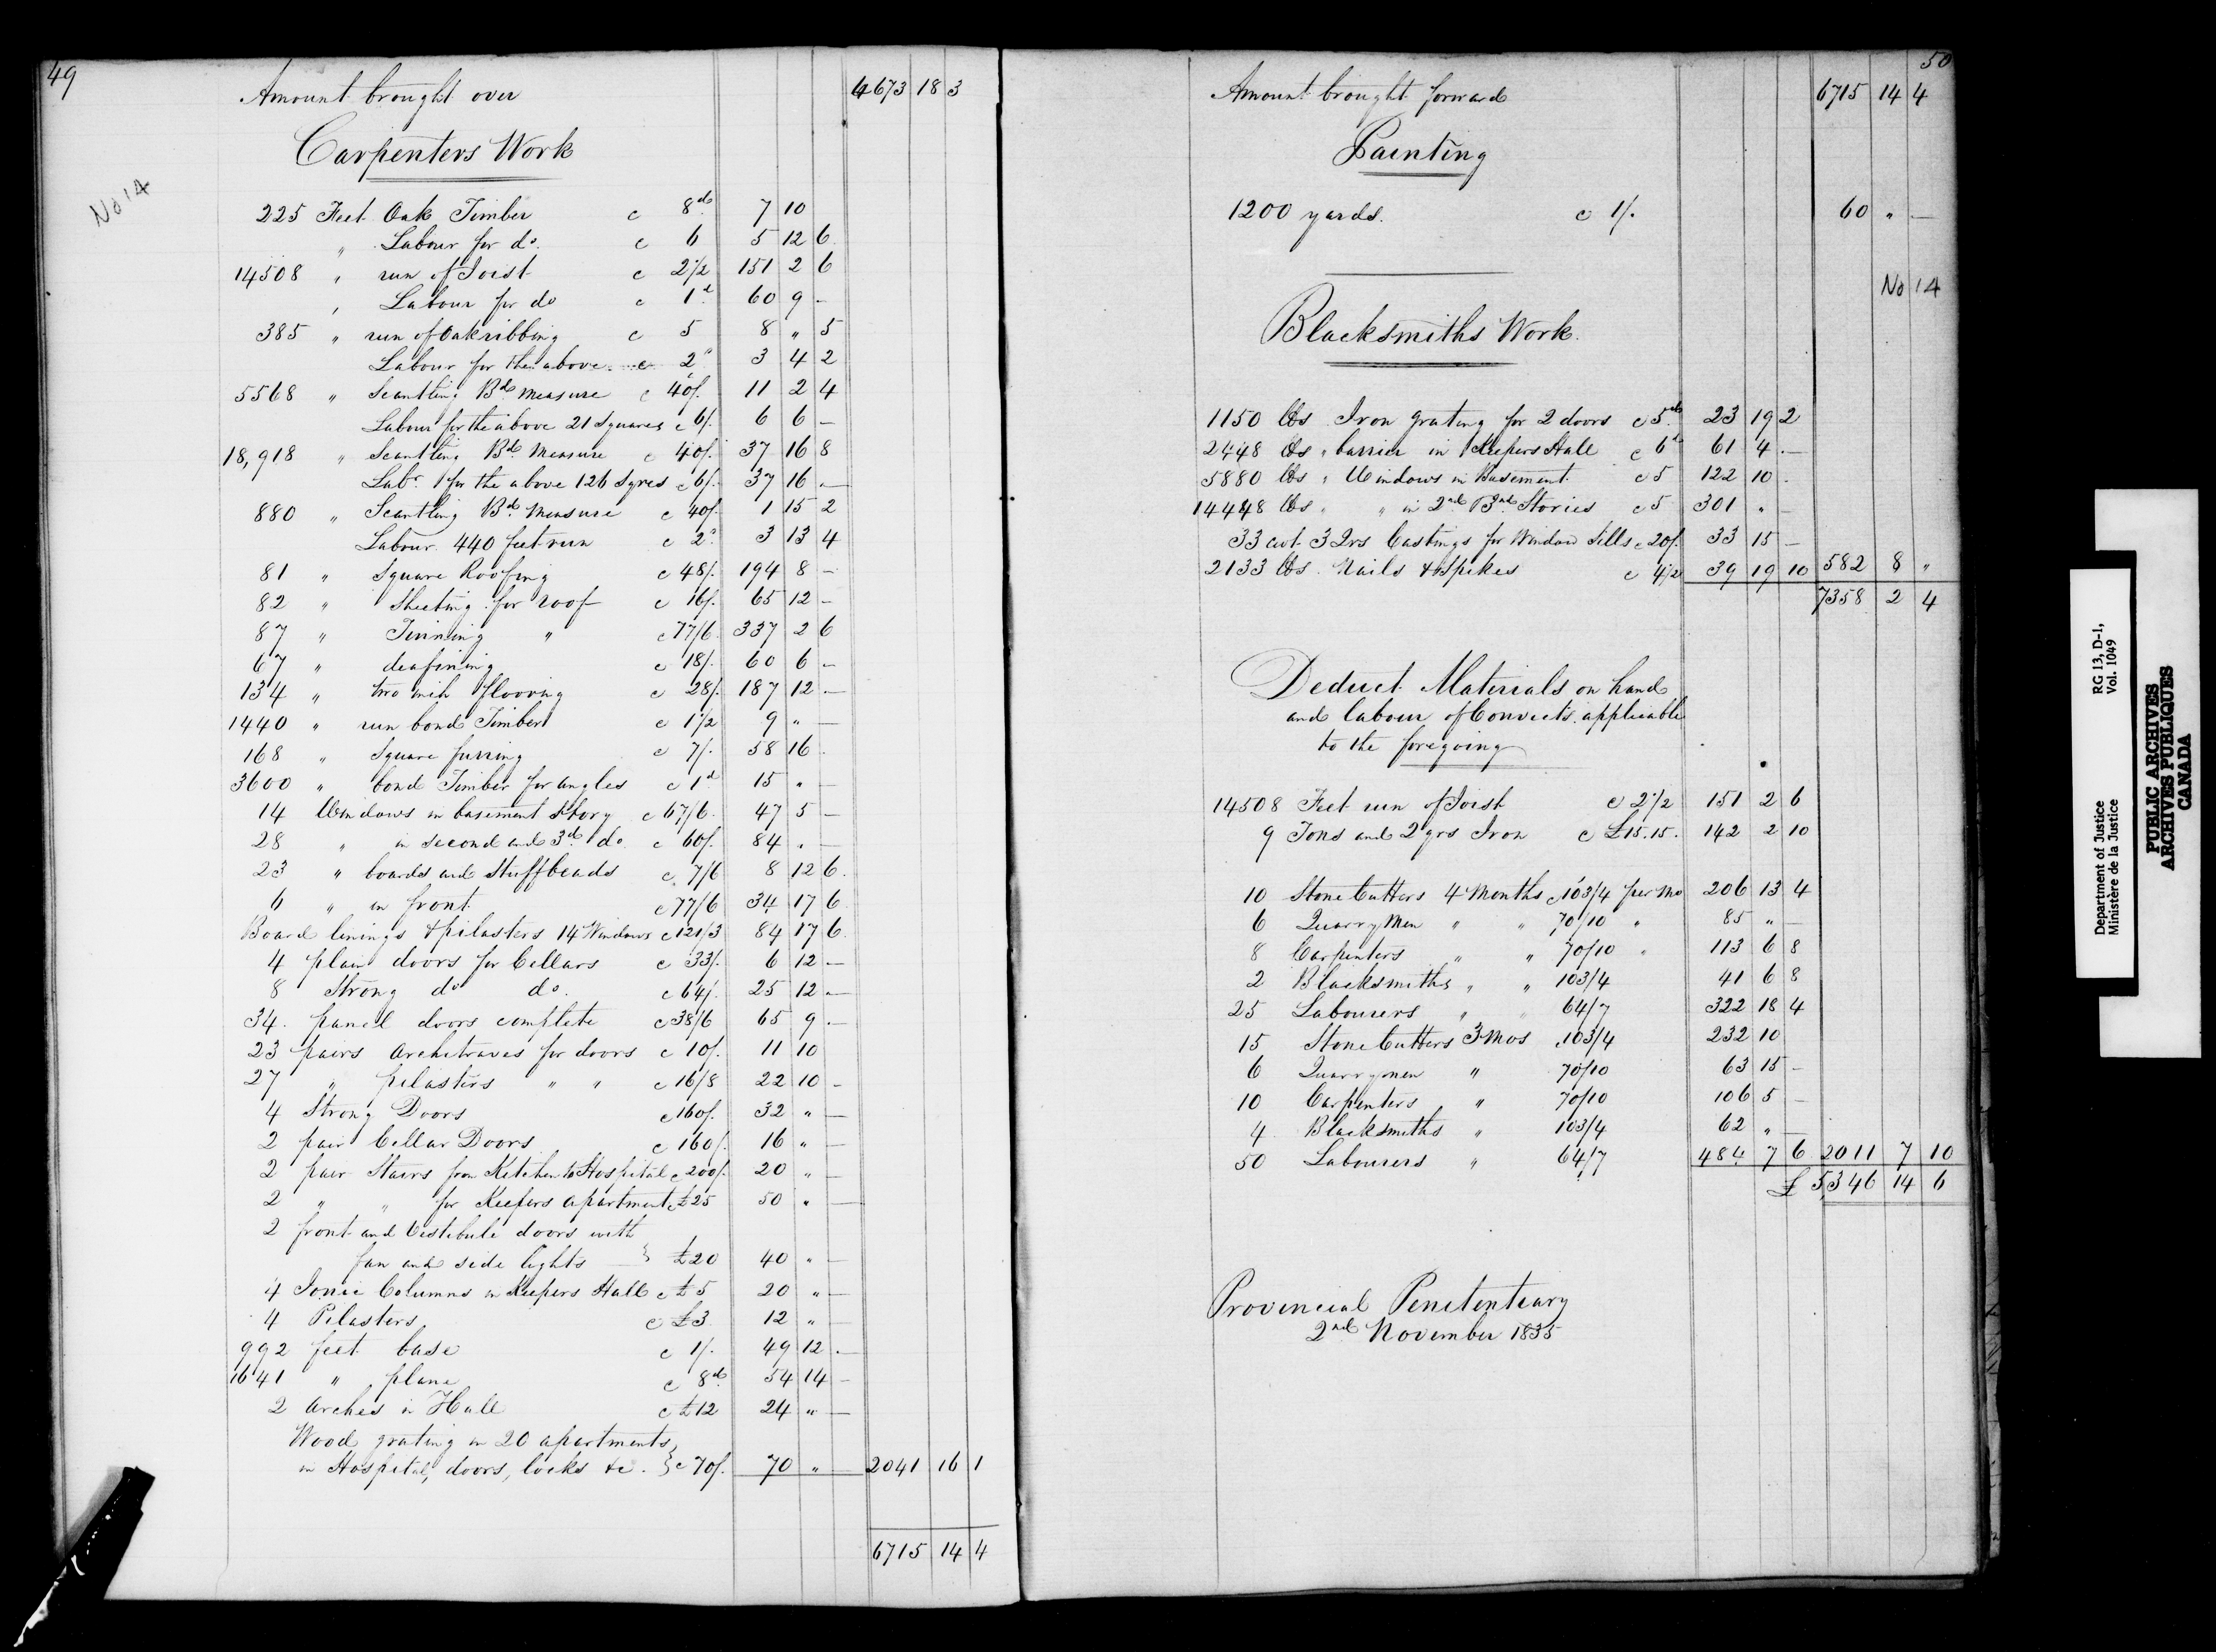 49
Amount brought over 4673 18 3
Carpenters Work
No 14
225 Feet Oak Timber c 8d 7 10
" Labour for do. c 6 5 12 6
14508 " run of Joist c 2 1/2 151 2 6
" Labour for do c 1d 60 9 -
385 " run of Oak ribbing c 5 8 " 5
Labour for the above c 2" 3 4 2
5568 " Scantling Bd Measure c 40/. 11 2 4
Labour for the above 21 Squares c 6/. 6 6 -
18,918 " Scantling Bd Measure c 40/. 37 16 8
Labr. for the above 126 Sqres c 6/. 37 16 -
880 " Scantling Bd Measure c 40/. 1 15 2
Labour 440 feet run c 2" 3 13 4
81 " Square Roofing c 48/. 194 8 -
82 " Sheeting for roof c 16/. 65 12 -
87 " Tinning " c 77/6 337 2 6
67 " deafining c 18/. 60 6 -
134 " two inch flooring c 28/. 187 12 -
1440 " run bond Timber c 1 1/2 9 " -
168 " Square furring c 7/. 58 16 .
3600 " bond Timber for angles c 1d 15 " -
14 Windows in basement Story c 67/6 47 5 -
28 " in second and 3d do c 60/. 84 " -
23 " boards and Stuffbeads c 7/6 8 12 6
6 " in front c 77/6 34 17 6
Board linings & pilasters 14 Windows c 121/3 84 17 6
4 plain doors for Cellars c 33/. 6 12 -
8 Strong do do. c 64/. 25 12 -
34. panel doors complete c 38/6 65 9 -
23 pairs Architraves for doors c 10/. 11 10
27 " pilasters " " c 16/8 22 10 -
4 Strong Doors c 160/. 32 " -
2 pair Cellar Doors c 160/. 16 " -
2 pair Stairs from Kitchen to Hospital c 200/. 20 " -
2 " " for Keepers apartment c £25 50 " -
2 front and Vestibule doors with
fan and side lights } £20 40 " -
4 Ionic Columns in Keepers Hall c £5 20 " -
4 Pilasters c £3 12 " -
992 feet base c 1/. 49 12 -
1641 " plane c 8d 54 14 -
2 Arches in Hall c £12 24 " -
Wood grating in 20 apartments
in Hospital, doors, locks &c. } c 70/. 70 " - 2041 16 1
6715 14 4
50
Amount brought forward 6715 14 4
Painting
1200 yards. c 1/. 60 " -
No 14
Blacksmiths Work.
1150 lbs Iron grating for 2 doors c 5d 23 19 2
2448 lbs " barrier in Keepers Hall c 6d 61 4 -
5880 lbs " Windows in Basement c 5 122 10 .
14448 lbs " " in 2nd & 3rd Stories c 5 301 " -
33 cwt. 3 Qrs Castings for Window Sills c 20/. 33 15 -
2133 lbs. Nails & Spikes c 4 1/2 39 19 10 582 8 "
7358 2 4
Deduct Materials on hand
and labour of Convicts applicable
to the foregoing
14508 Feet run of Joist c 2 1/2 151 2 6
9 Tons and 2 qrs Iron c £15.15. 142 2 10
10 Stone Cutters 4 Months c 103/4 per Mo 206 13 4
6 Quarry Men " " 70/10 " 85 " -
8 Carpenters " " 70/10 " 113 6 8
2 Blacksmiths " " 103/4 41 6 8
25 Labourers " " 64/7 322 18 4
15 Stone Cutters 3 Mos 103/4 232 10
6 Quarrymen " 70/10 63 15 -
10 Carpenters " 70/10 106 5 -
4 Blacksmiths " 103/4 62 " -
50 Labourers " 64/7 484 7 6 2011 7 10
£ 5,346 14 6
Provincial Penitentiary
2nd November 1835
Department of Justice RG 13, D-1,
Ministère de la Justice Vol. 1049
PUBLIC ARCHIVES
ARCHIVES PUBLIQUES
CANADA